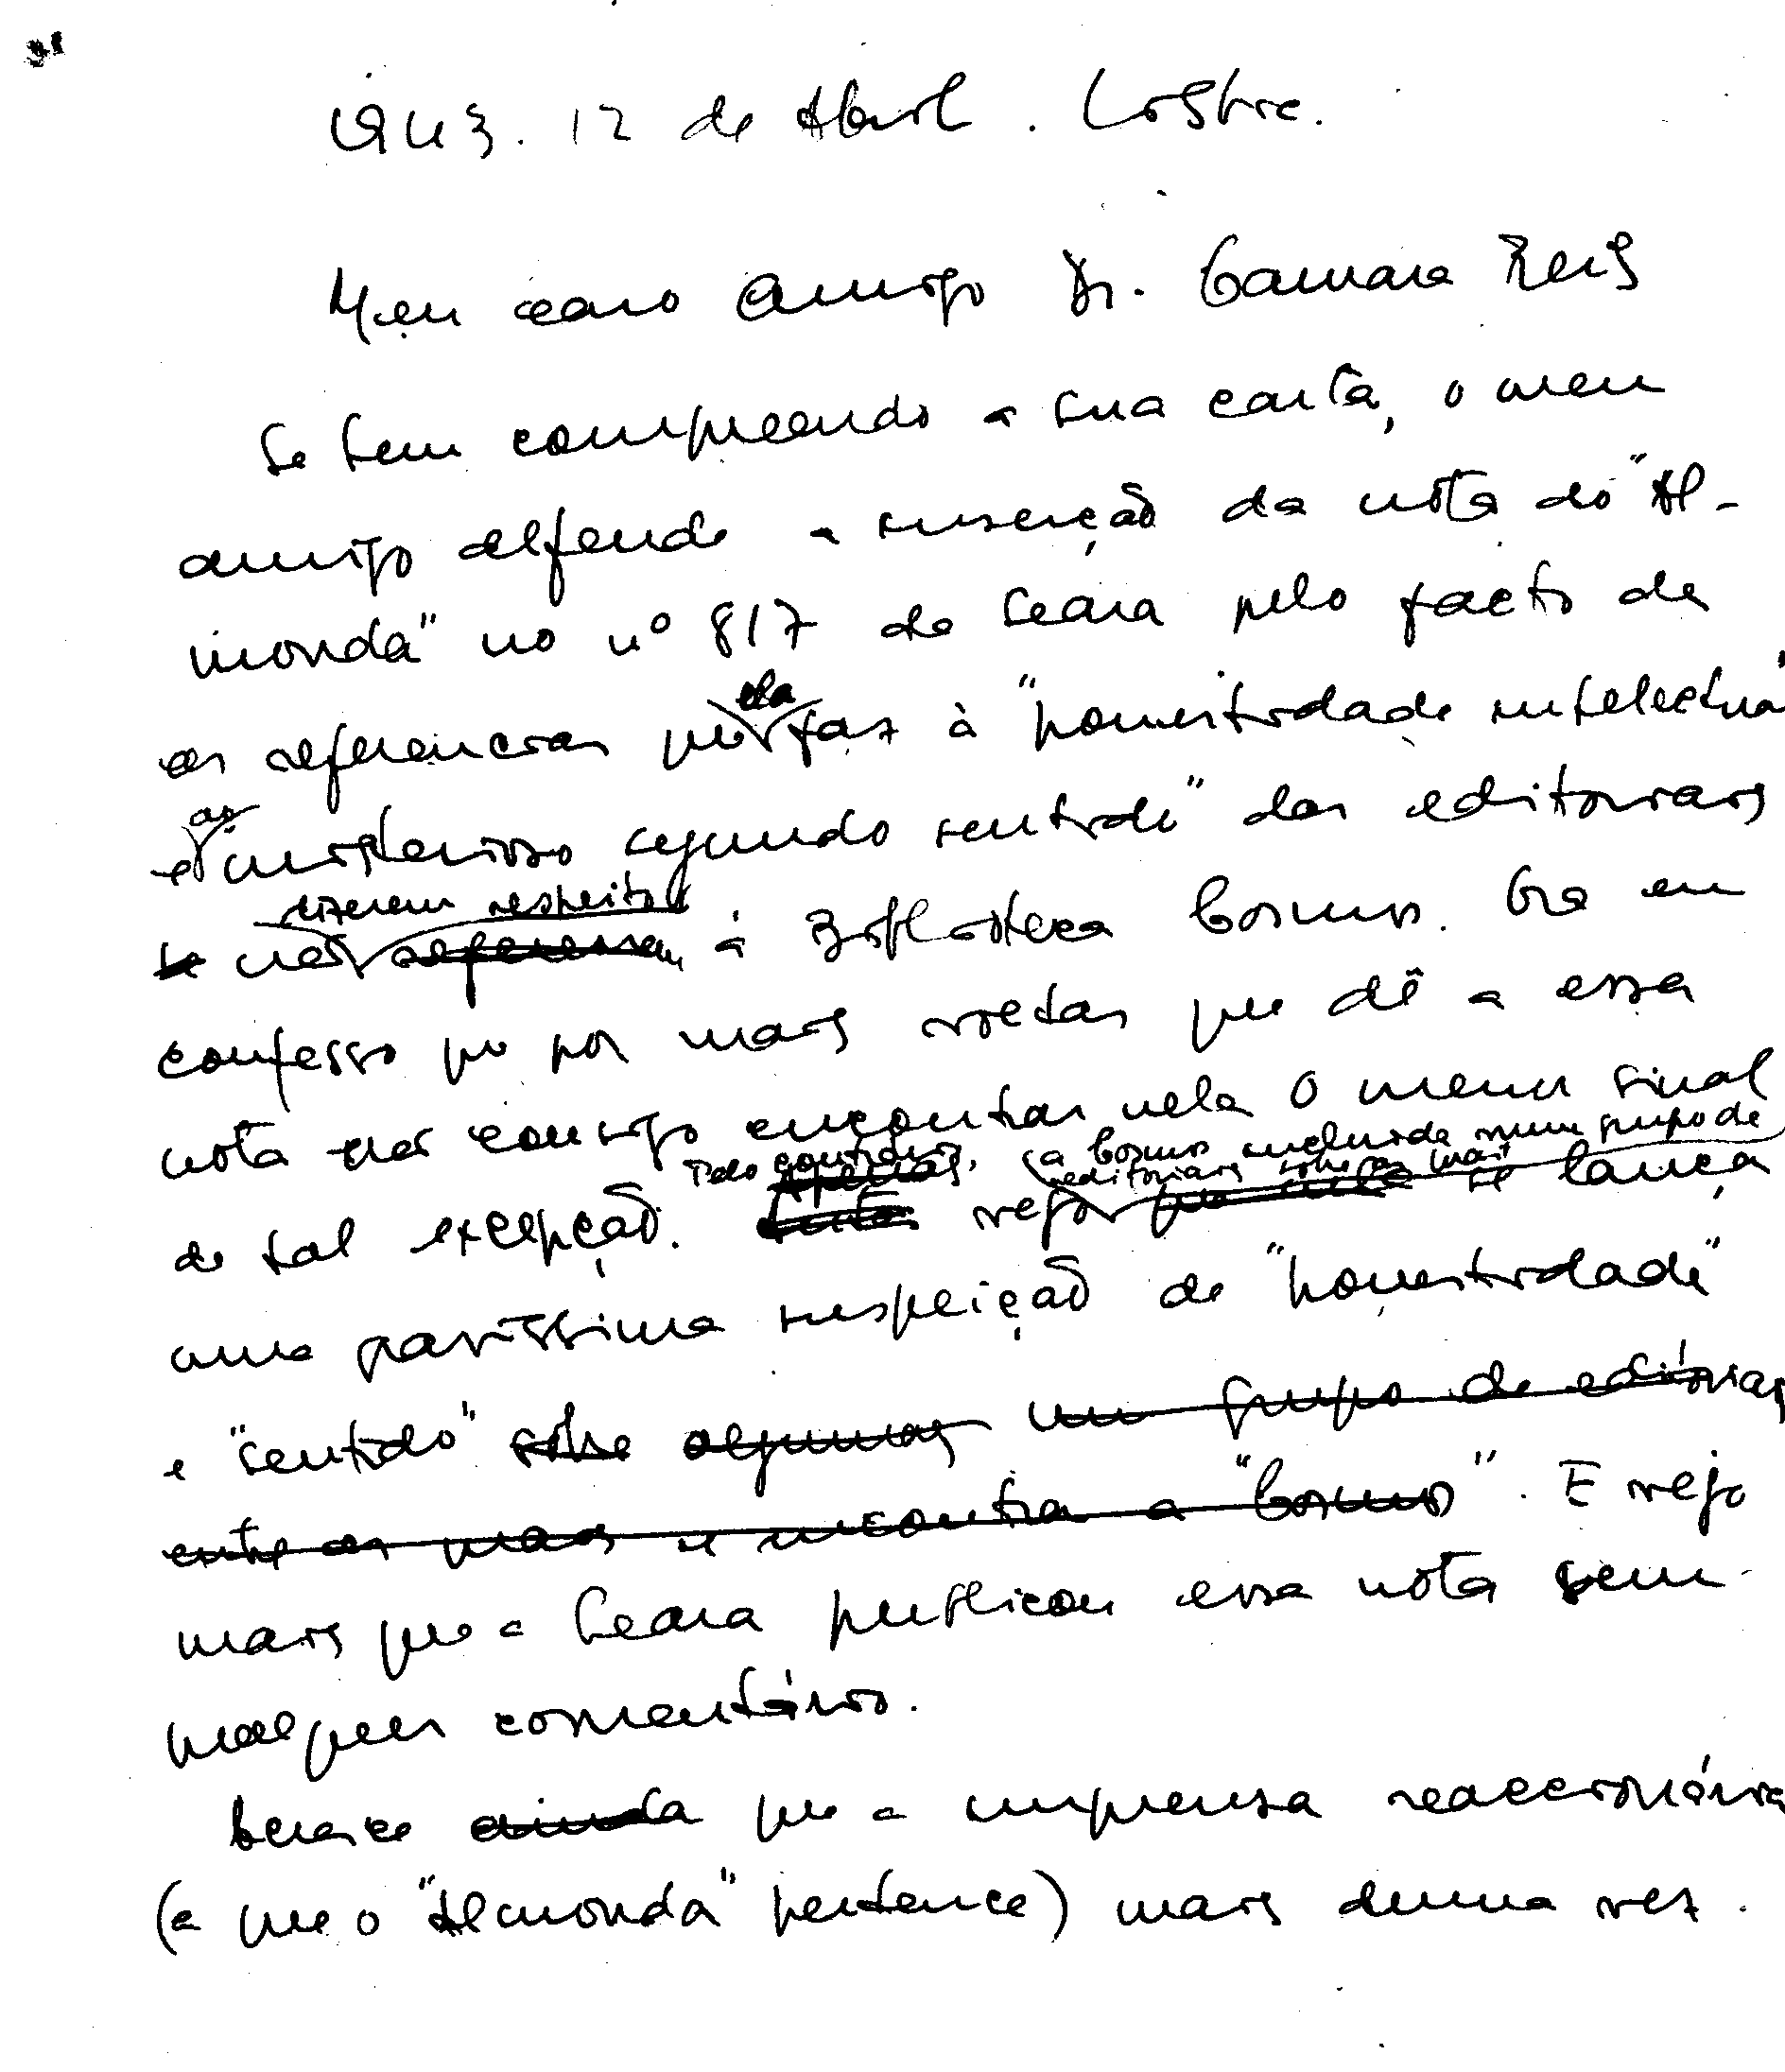 1943. 12 de Abril. Lisboa.
Meu caro Amigo Dr. Camara Reis
Se bem compreendo a sua carta, o meu
amigo defende a inserção da nota do "Al-
monda" no nº 817 da Seara pelo facto de
as referencias que ela faz à "honestidade intelectual"
e ao "misterioso segundo sentido" das editoriais
não dizerem respeito à Biblioteca Cosmos. Ora eu
confesso que por mais voltas que dê a essa
nota não consigo encontrar nela o menor sinal
de tal excepção. Pelo contrário, vejo a Cosmos incluida num grupo de
editoriais sobre as quais se lança
uma gravissima suspeição de "honestidade"
e "sentido" sobre algumas um grupo de editoriais
entre as quais se encontra a "Cosmos". E vejo
mais que a Seara publicou essa nota sem
qualquer comentário.
Acresce ainda que a imprensa reaccionária
(a que o "Almonda" pertence) mais duma vez